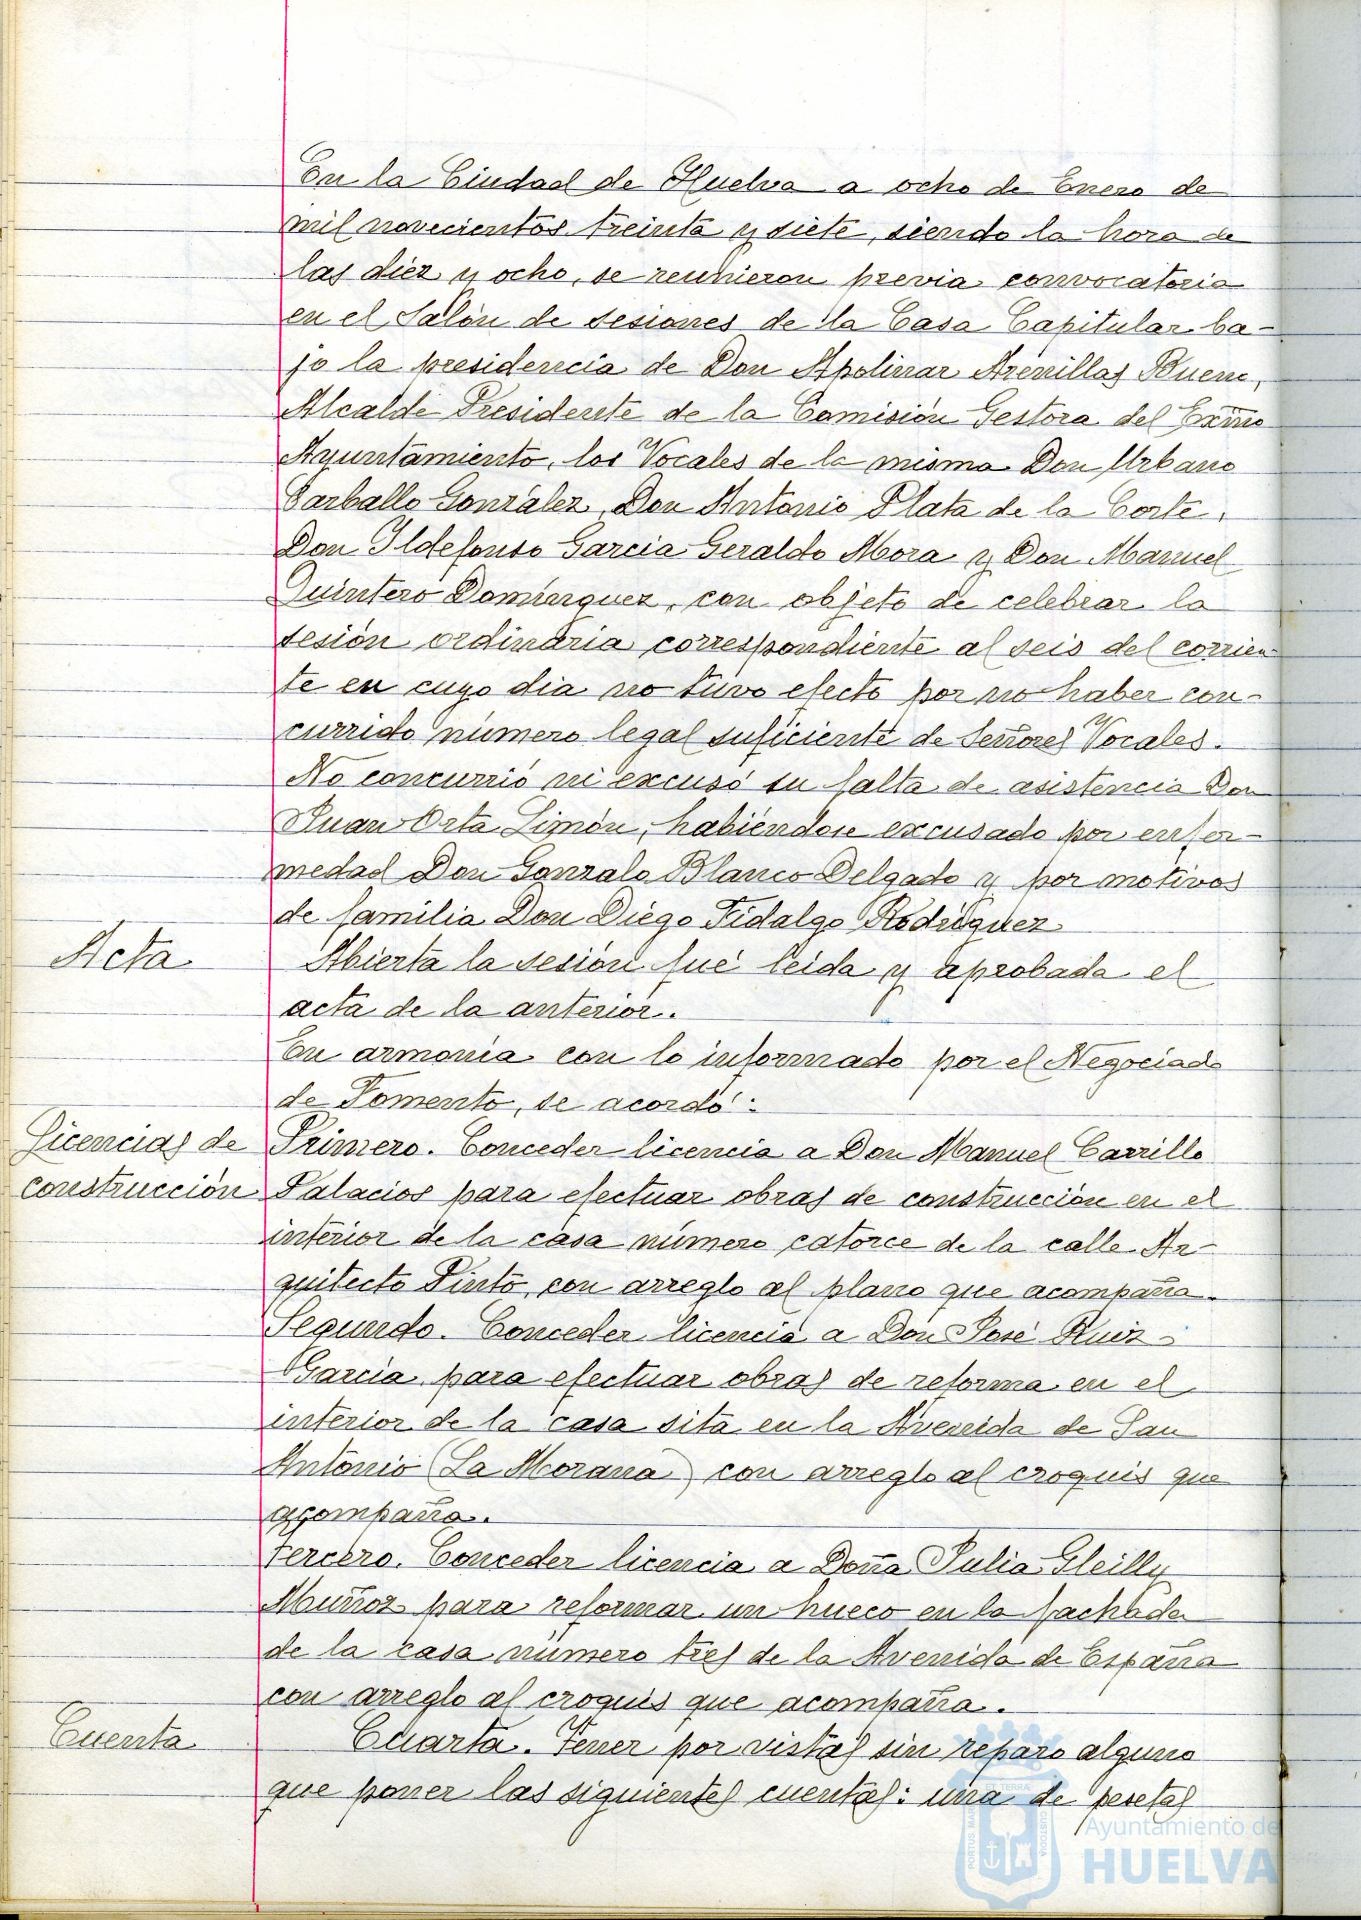 En la Ciudad de Huelva a ocho de Enero de
mil novecientos treinta y siete, siendo la hora de
las diez y ocho, se reunieron previa convocatoria
en el Salón de sesiones de la Casa Capitular ba-
jo la presidencia de Don Apolinar Arenillas Bueno,
Alcalde Presidente de la Comisión Gestora del Exmo
Ayuntamiento, los Vocales de la misma Don Urbano
Carballo González, Don Antonio Plata de la Corte,
Don Ildefonso García Geraldo Mora y Don Manuel
Quintero Domínguez, con objeto de celebrar la
sesión ordinaria correspondiente al seis del corrien-
te en cuyo dia no tuvo efecto por no haber con-
currido número legal suficiente de Señores Vocales.
No concurrió ni excusó su falta de asistencia Don
Juan Orta Limón, habiéndose excusado por enfer-
medad Don Gonzalo Blanco Delgado y por motivos
de familia Don Diego Fidalgo Rodríguez
Acta Abierta la sesión fué leida y aprobada el
acta de la anterior.
En armonía con lo informado por el Negociado
de Fomento, se acordó:
Licencias de Primero. Conceder licencia a Don Manuel Carrillo
construcción Palacios para efectuar obras de construcción en el
interior de la casa número catorce de la calle Ar-
quitecto Pinto, con arreglo al plano que acompaña.
Segundo. Conceder licencia a Don José Ruiz
García para efectuar obras de reforma en el
interior de la casa sita en la Avenida de San
Antonio (La Morana) con arreglo al croquis que
acompaña.
Tercero. Conceder licencia a Doña Julia Gleilly
Muñoz para reformar un hueco en la fachada
de la casa número tres de la Avenida de España
con arreglo al croquis que acompaña.
Cuenta Cuarta. Tener por vistas sin reparo alguno
que poner las siguientes cuentas: una de pesetas
PORTUS MARIS ET TERRAE CUSTODIA
Ayuntamiento de
HUELVA